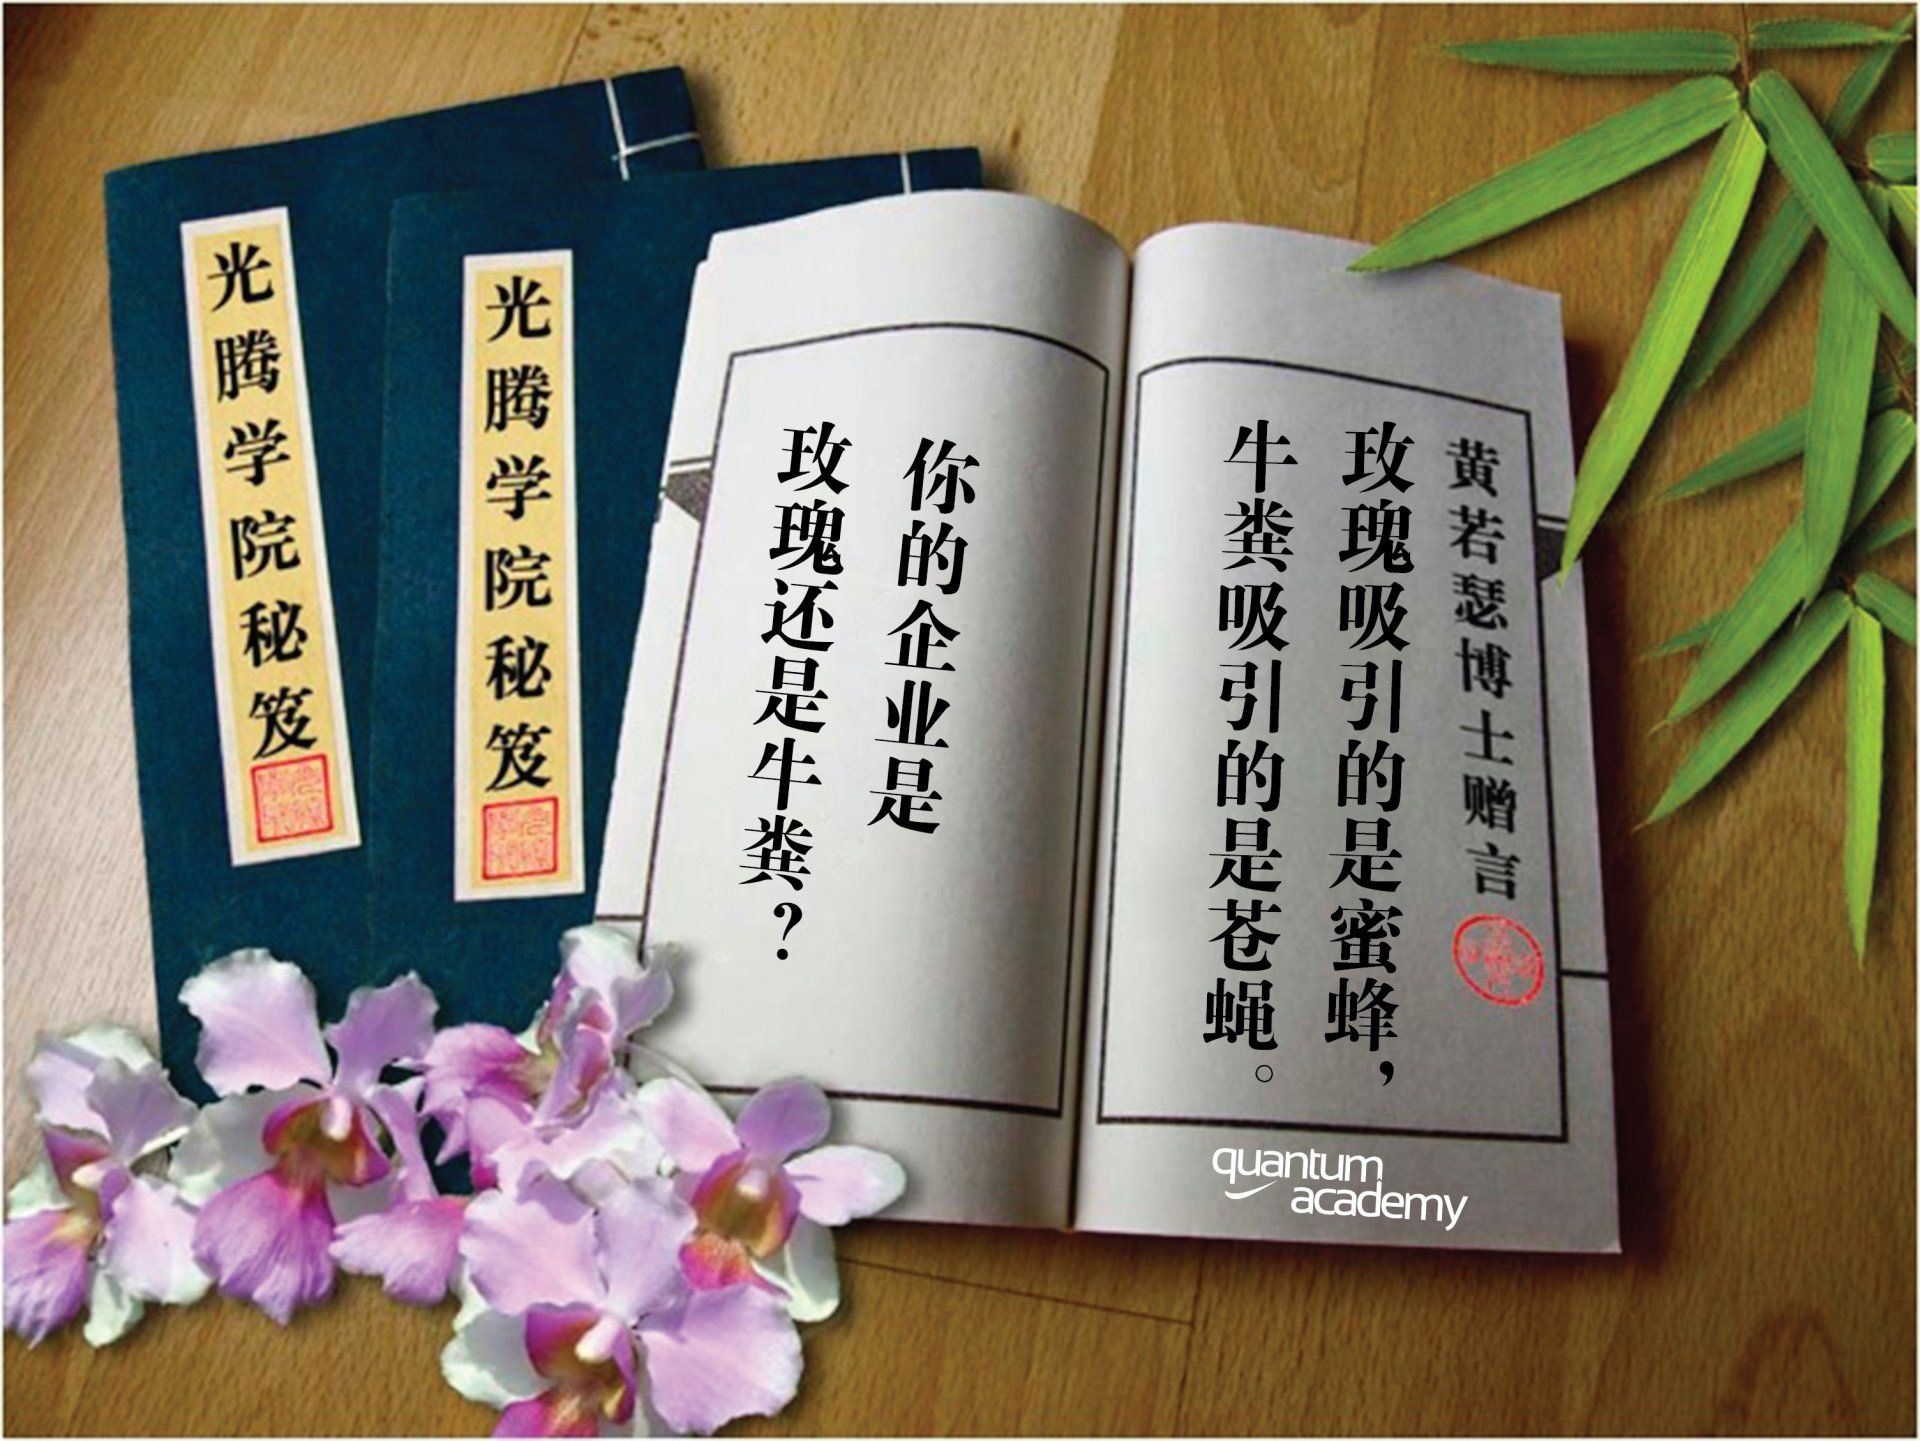 光腾学院秘笈
光腾学院秘笈
黄若瑟博士赠言
玫瑰吸引的是蜜蜂，
牛粪吸引的是苍蝇。
你的企业是
玫瑰还是牛粪？
quantum
academy